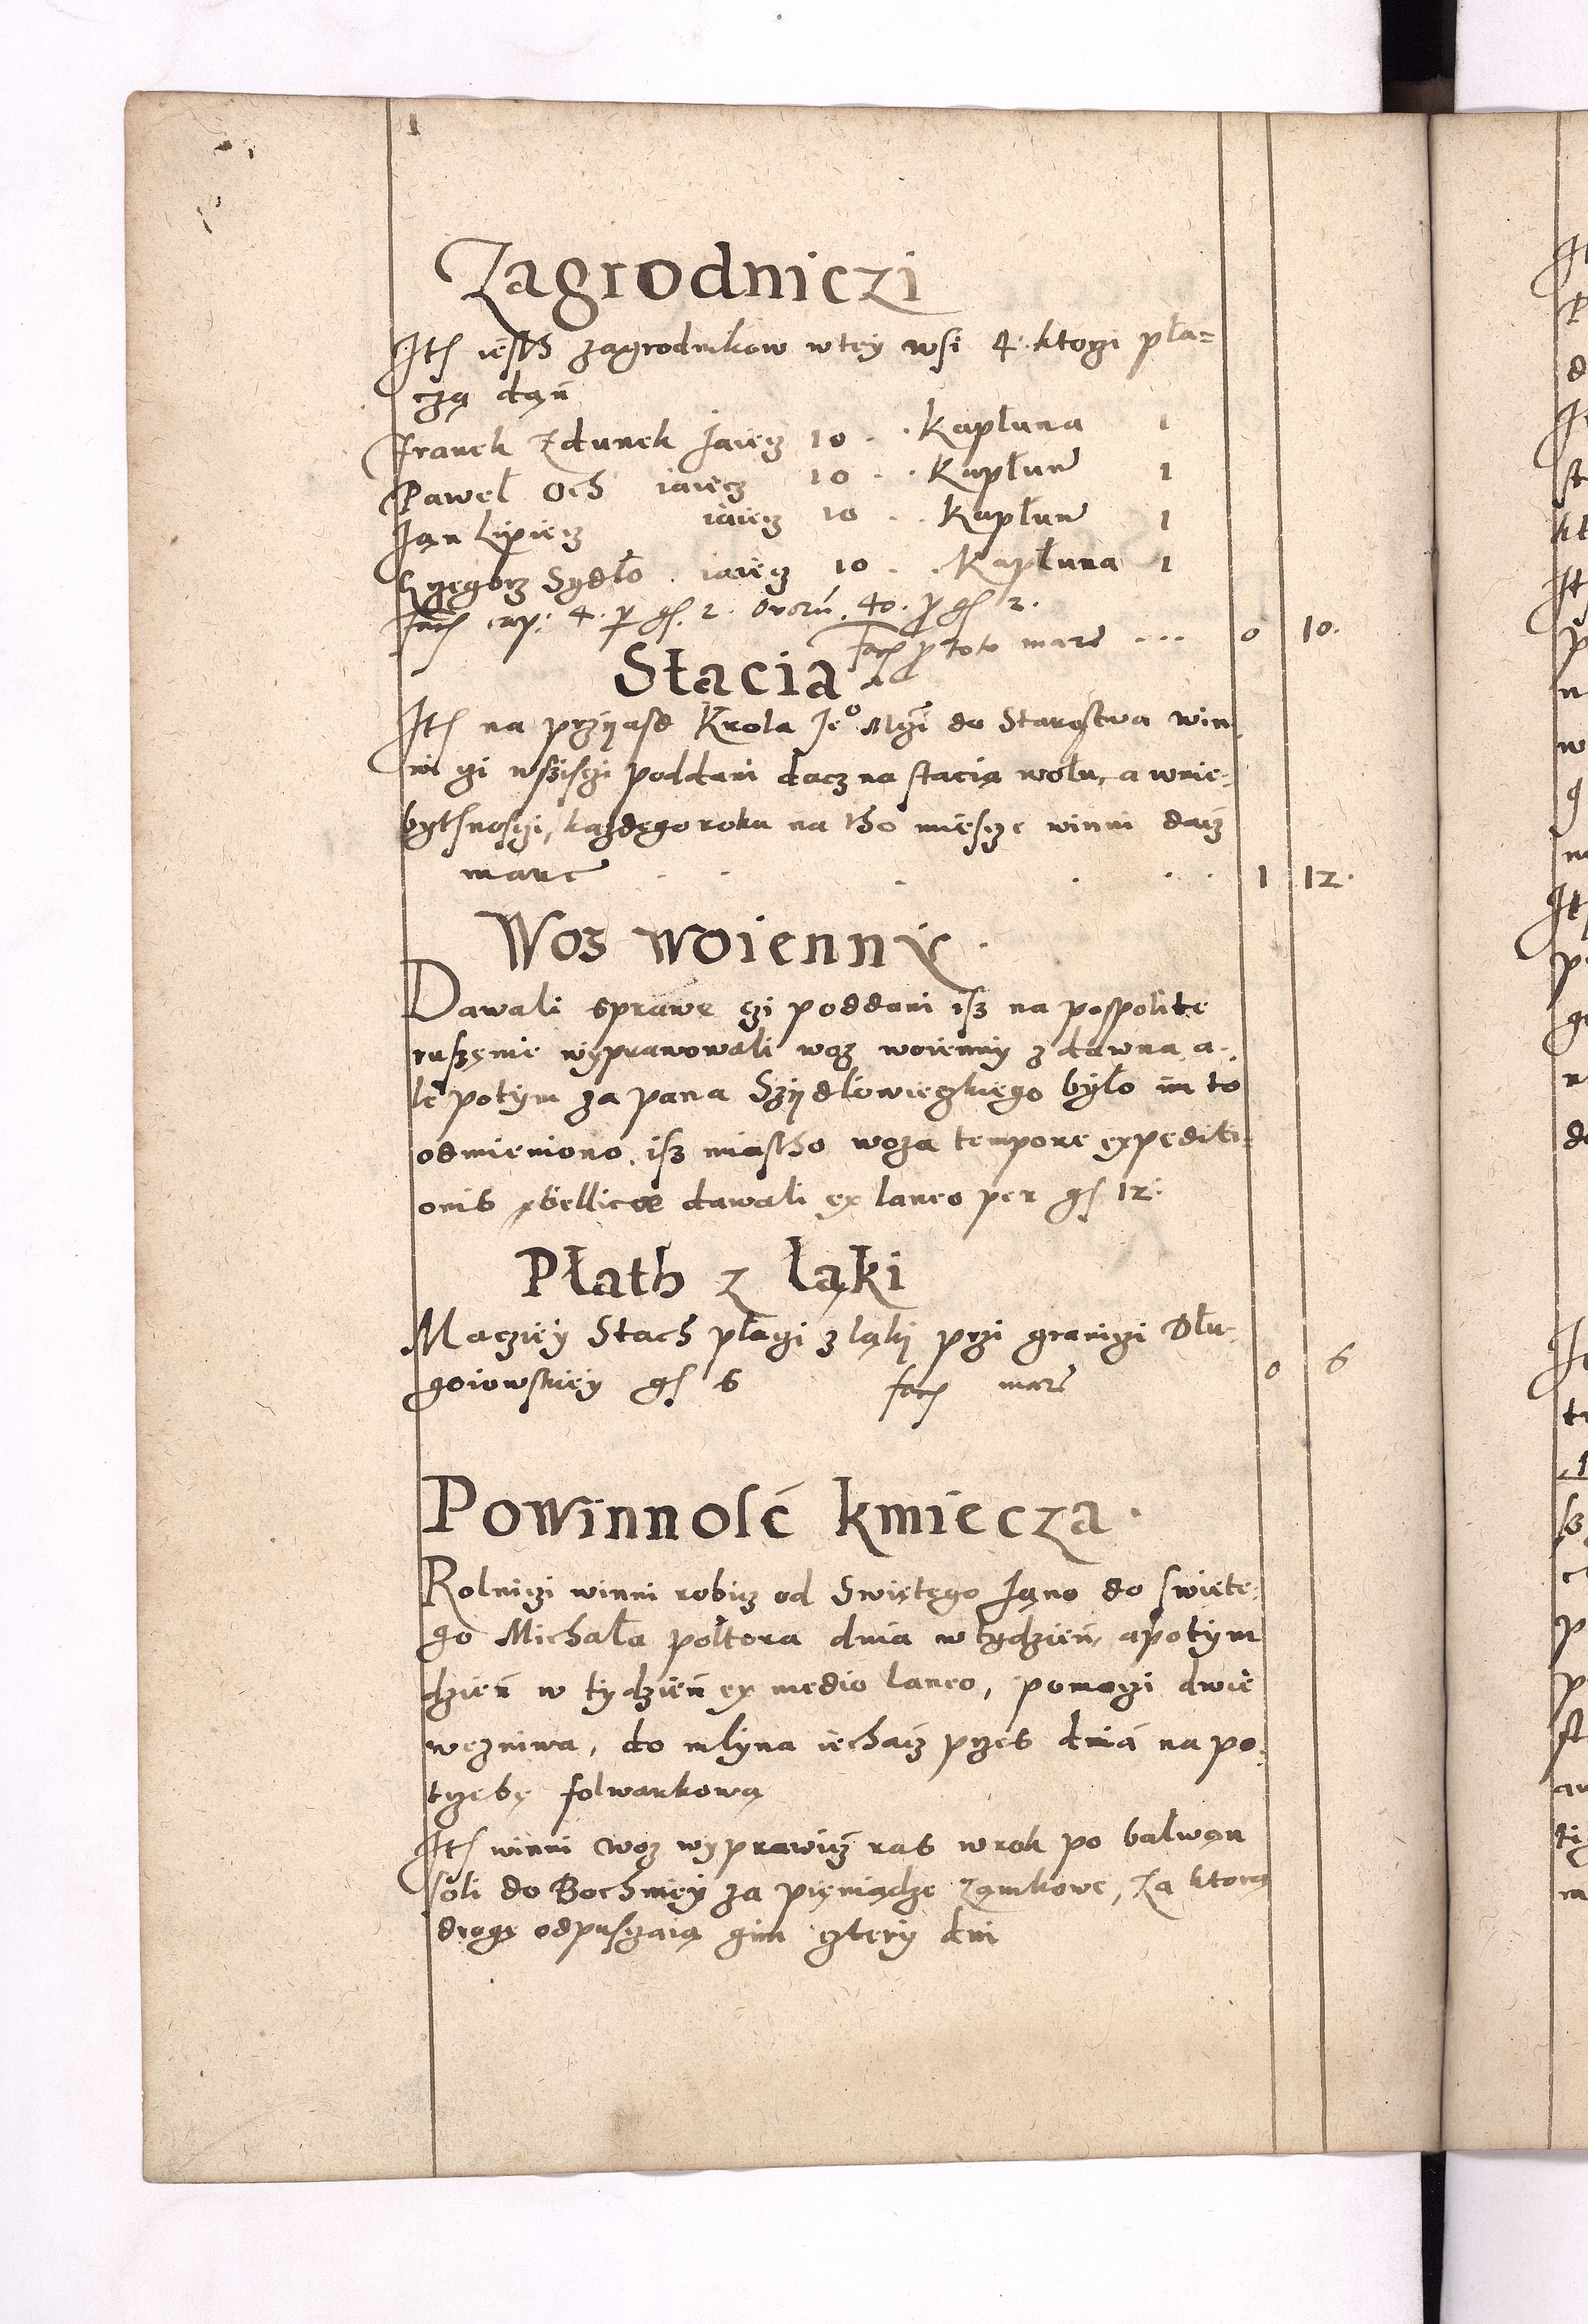 Zagrodniczi
Ite iesth zagrodnikow w tey wsi 4. ktorzi pła=
czą dąń
Franek Zdunek Jaiecz 10 . . Kapluna 1
Paweł Och iaiecz 10 . . Kapłun 1
Jan Lipiecz iaiecz 10 . . Kapłun 1
Grzegorz Sydło . iaiecz 10 . . Kapłuna 1
facit cap: 4. per gs. 2. ovorū. 40. p gs 2.
facit p toto marc .... 0 10.
Stacia
Ite na przyasd Krola Je⁰ Mczi do Starostwa win
ni czi wszisczi poddani dacz na stacią wołu, a w nie=
bythnosczi, każdego roku na tho miescze winni dacz
marc . . . . . . 1 12.
Woz woienny.
Dawali sprawe czi poddani isz na pospolite
ruszenie wyprawowali woz woienny z dawna a=
le potym za pana Szydlowieczkiego było im to
odmieniono, isz miastho woza tempore expediti=
onis bellicæ dawali ex laneo per gs 12.
Płath z łąki
Macziey Stach płaczi z ląki przi graniczi Dłu=
goiowskiey gs 6 facit marc 0 6
Powinność kmiecza.
Rolniczi winni robicz od Swiętego Jana do swięte=
go Michała połtora dnia w tydzień, a potym
dzień w tydzień ex medio laneo, pomoczi dwie
we zniwa, do mlyna iechacz przes dnia na po=
trzebę folwarkową
Ite winni woz wyprawicz ras w rok po balwan
soli do Bochniey za pieniądze zamkowe, Za ktorą
drogę odpusczaią gim cztery dni